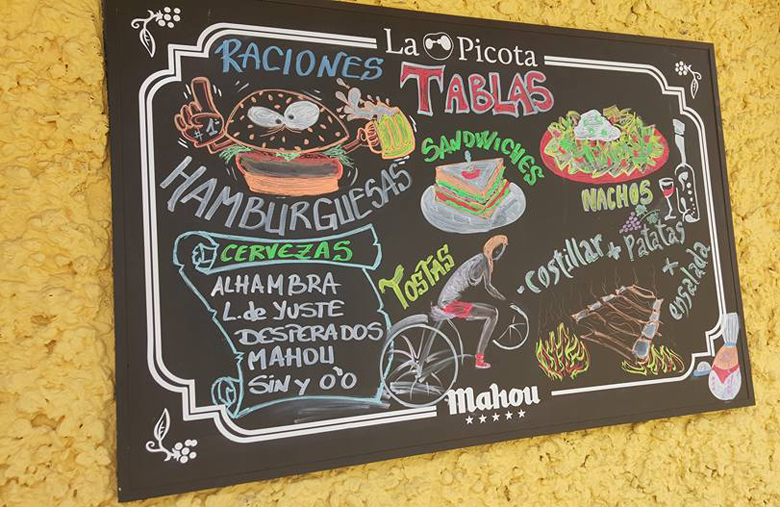 La Picota
RACIONES
TABLAS
#1
HAMBURGUESAS
SANDWICHES
NACHOS
CERVEZAS
ALHAMBRA
L. de YUSTE
DESPERADOS
MAHOU
SIN y 0'0
TOSTAS
- Costillar + Patatas
+ ensalada
Mahou